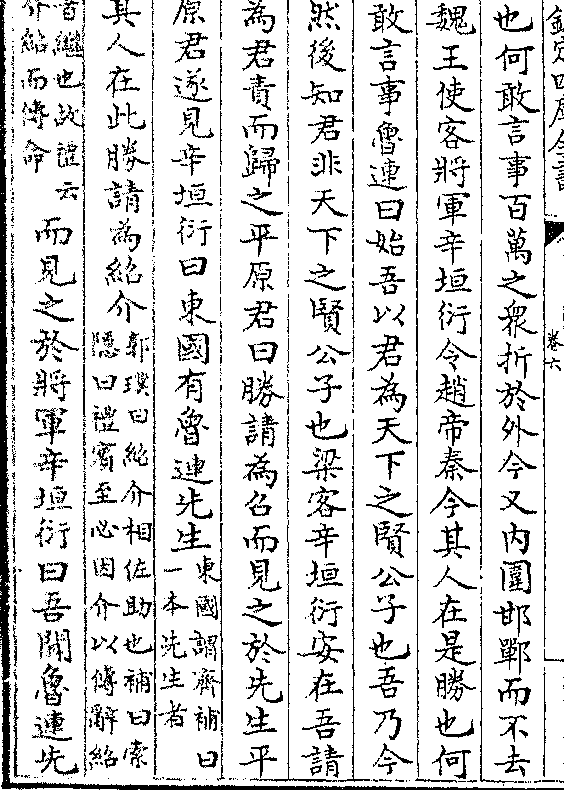 欽定四庫全書
卷六
也何敢言事百萬之衆折於外今又内圍邯鄲而不去
魏王使客將軍辛垣衍令趙帝秦今其人在是勝也何
敢言事魯連曰始吾以君為天下之賢公子也吾乃今
然後知君非天下之賢公子也梁客辛垣衍安在吾請
為君責而歸之平原君曰勝請為召而見之於先生平
原君遂見辛垣衍曰東國有魯連先生東國謂齊補曰
一本先生者
其人在此勝請為紹介郭璞曰紹介相佐助也補曰索
隱曰禮賓至必因介以傳辭紹
者繼也故禮云
介紹而傳命
而見之於將軍辛垣衍曰吾聞魯連先